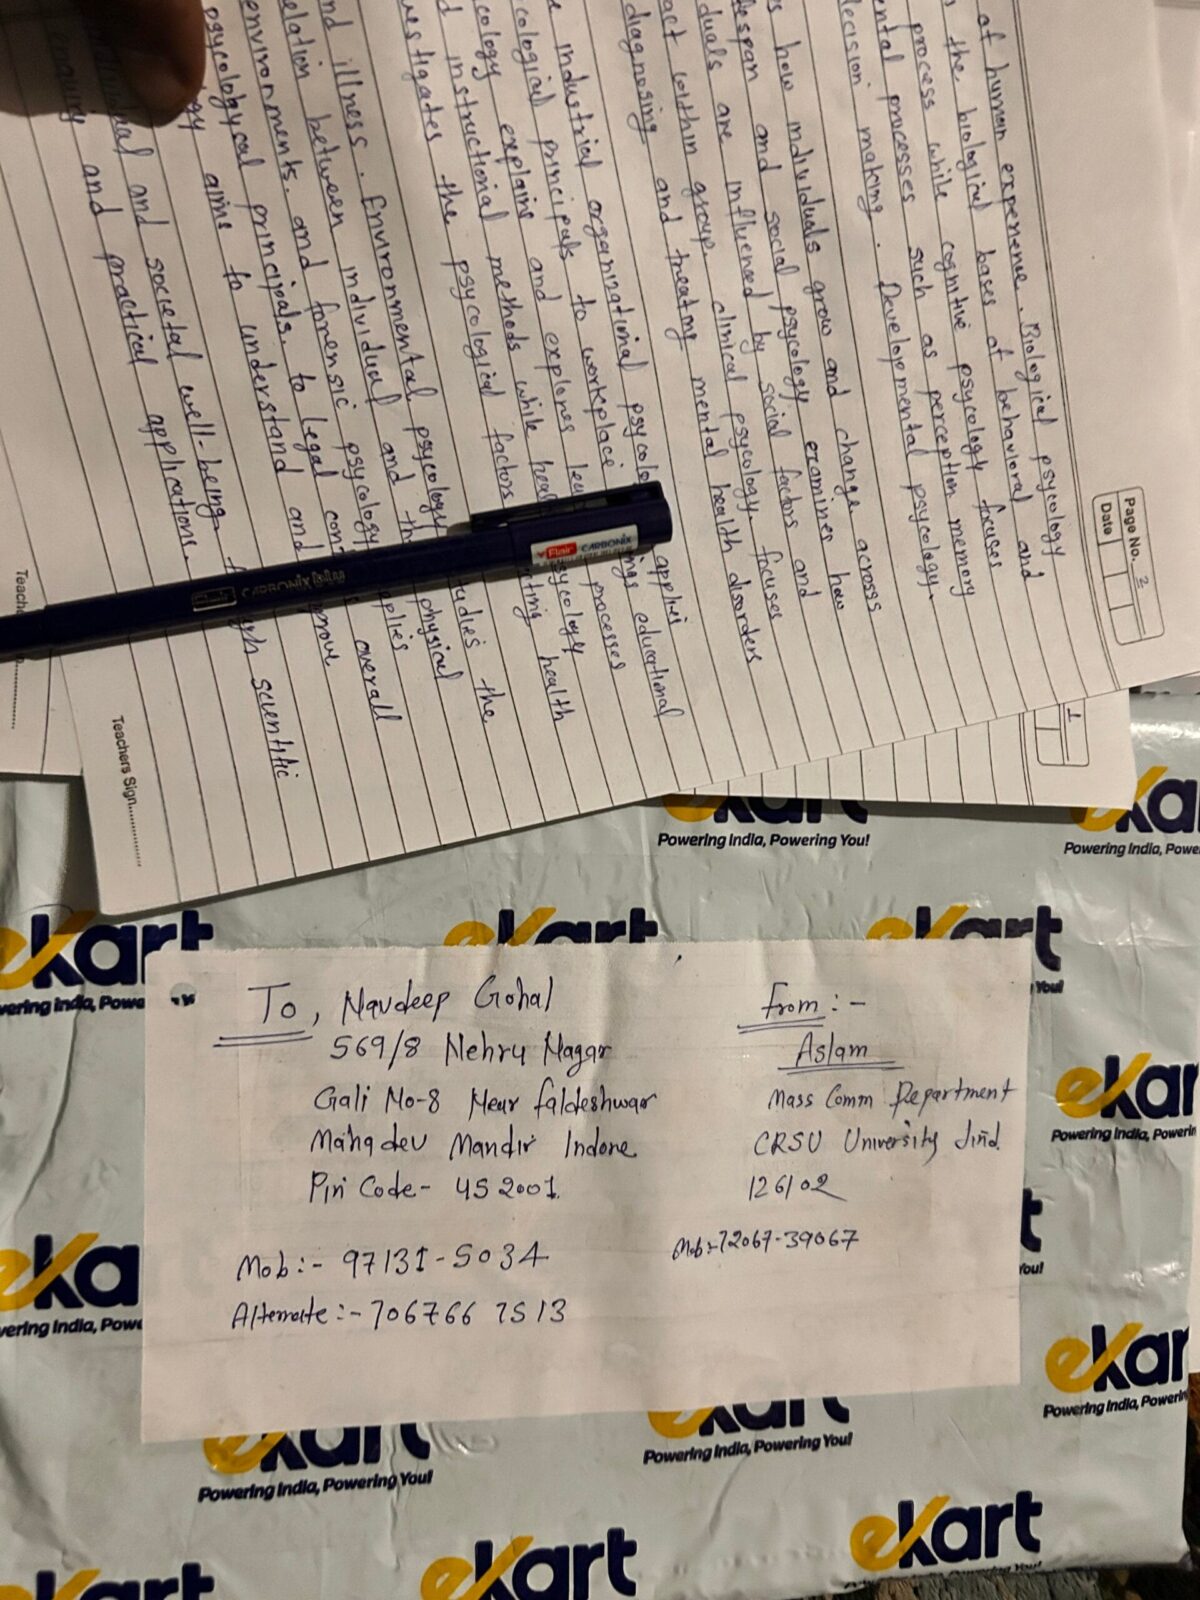 Page No. 2
Date
of human experience. Biological psycology
the biological bases of behavioral and
process while cognitive psycology focuses
ental processes such as perception memory
decision making. Developmental psycology.
how individuals grow and change across
lespan and social psycology examines how
duals are influenced by social factors and
act within group. clinical psycology. focuses
diagnosing and treating mental health disorders
industrial organizational psycolo applies
cological principals to workplace ings educational
cology explains and explores processes
instructional methods while hea sycology
vestigates the psycological factors cting health
nd illness. Environmental psycology tudies the
elation between individual and th physical
environments. and forensic psycology applies
psycological principals. to legal con overall
aims to understand and prove
and societal well-being. scientific
and practical applications.
Teachers Sign..............
Flair CARBONIX
Flair CARBONIX blu
1
Teach
ekart
Powering India, Powering You!
To, Navdeep Gohal
569/8 Nehru Nagar
Gali No-8 Near faldeshwar
Mahadev Mandir Indore
Pin Code- 452001.
Mob:- 97131-5034
Alternate:- 706766 7513
From:-
Aslam
Mass Comm Department
CRSU University Jind.
126102
Mob:-72067-39067
ekart
Powering India, Powering You!
ekart
Powering India, Powering You!
ekart
Powering India, Powering You!
ekart
Powering India, Powering You!
ekart